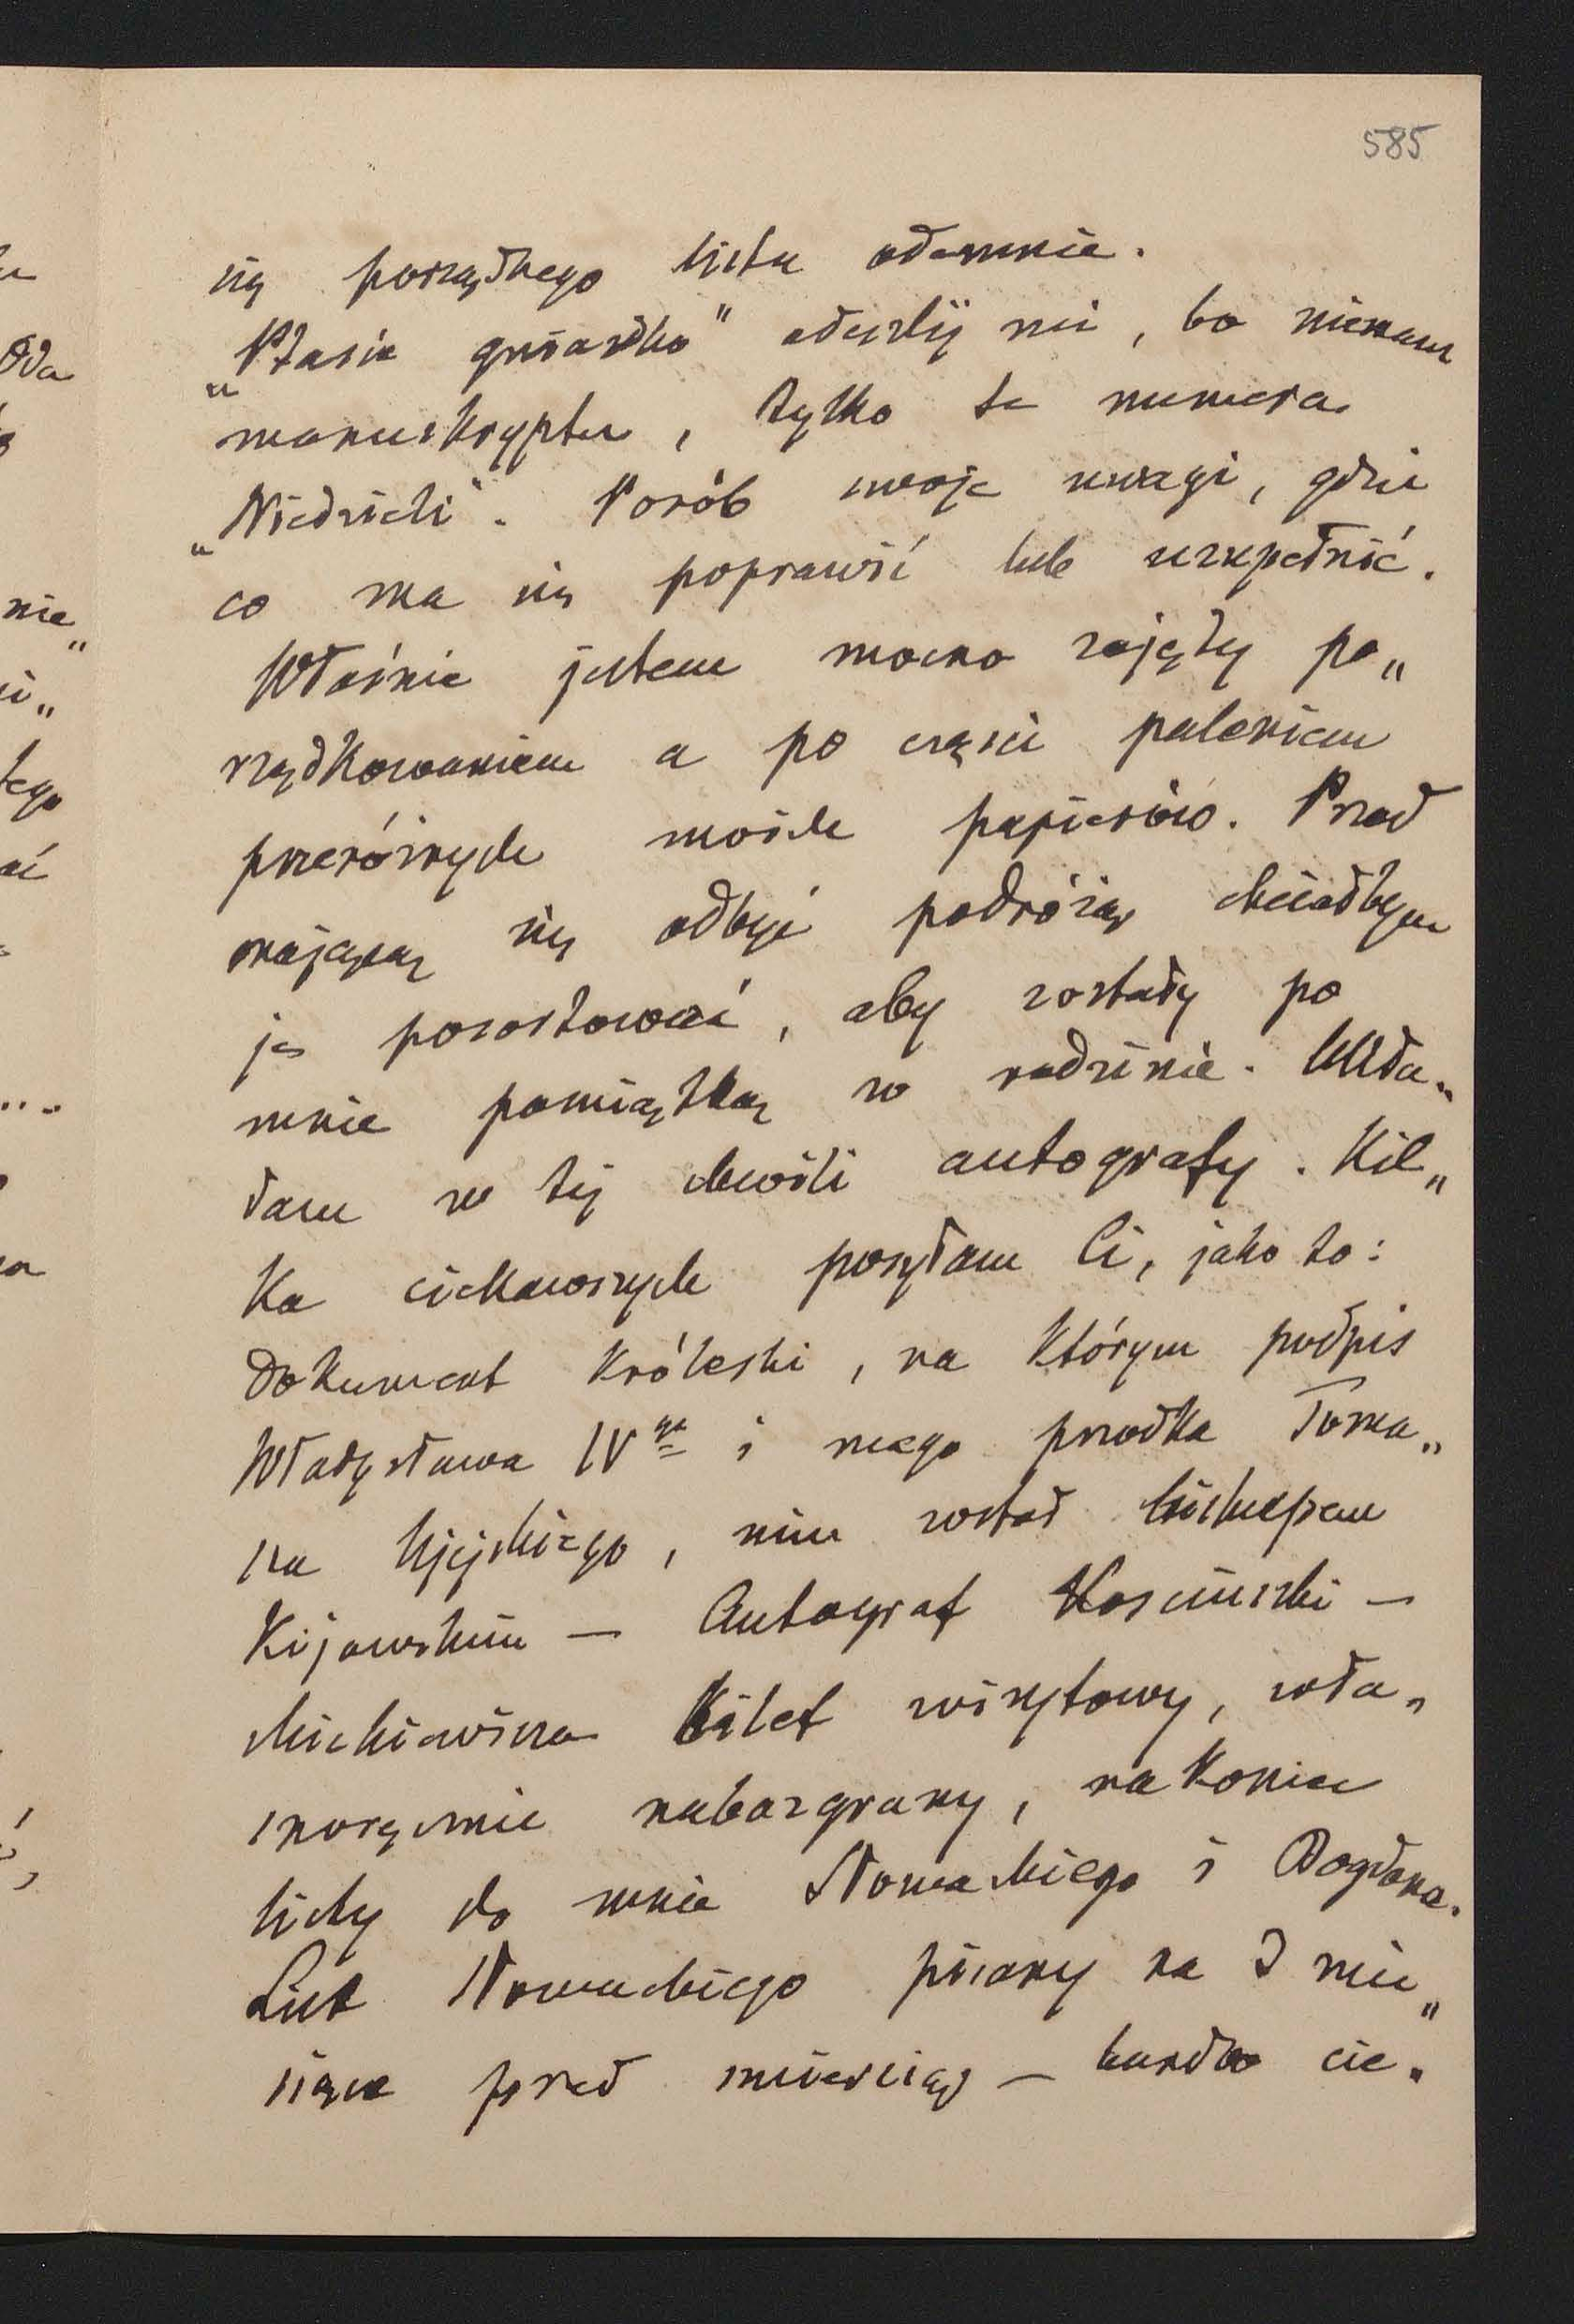 585
się porządnego listu odemnie.
„Ptasie gniazdko" odeszlij mi, bo niemam
manuskryptu, tylko te numera
„Niedzieli". Porób swoje uwagi, gdzie
co ma się poprawić lub uzupełnić.
Właśnie jestem mocno zajęty po„
rządkowaniem a po części paleniem
przeróżnych moich papierów. Przed
mającą się odbyć podróżą chciałbym
je pozostawić, aby zostały po
mnie pamiątką w rodzinie. Wkła„
dam w tej chwili autografy. Kil„
ka ciekawszych posyłam Ci, jako to:
Dokument Króleski, na którym podpis
Władysława IVgo i mego przodka Toma„
sza Ujejskiego, nim został biskupem
Kijowskim — Autograf Kosciuszki —
Mickiewicza bilet wizytowy, wła„
snoręcznie nabazgrany, nakoniec
listy do mnie Słowackiego i Bogdana.
List Słowackiego pisany na 2 mie„
siące przed śmiercią — bardzo cie„